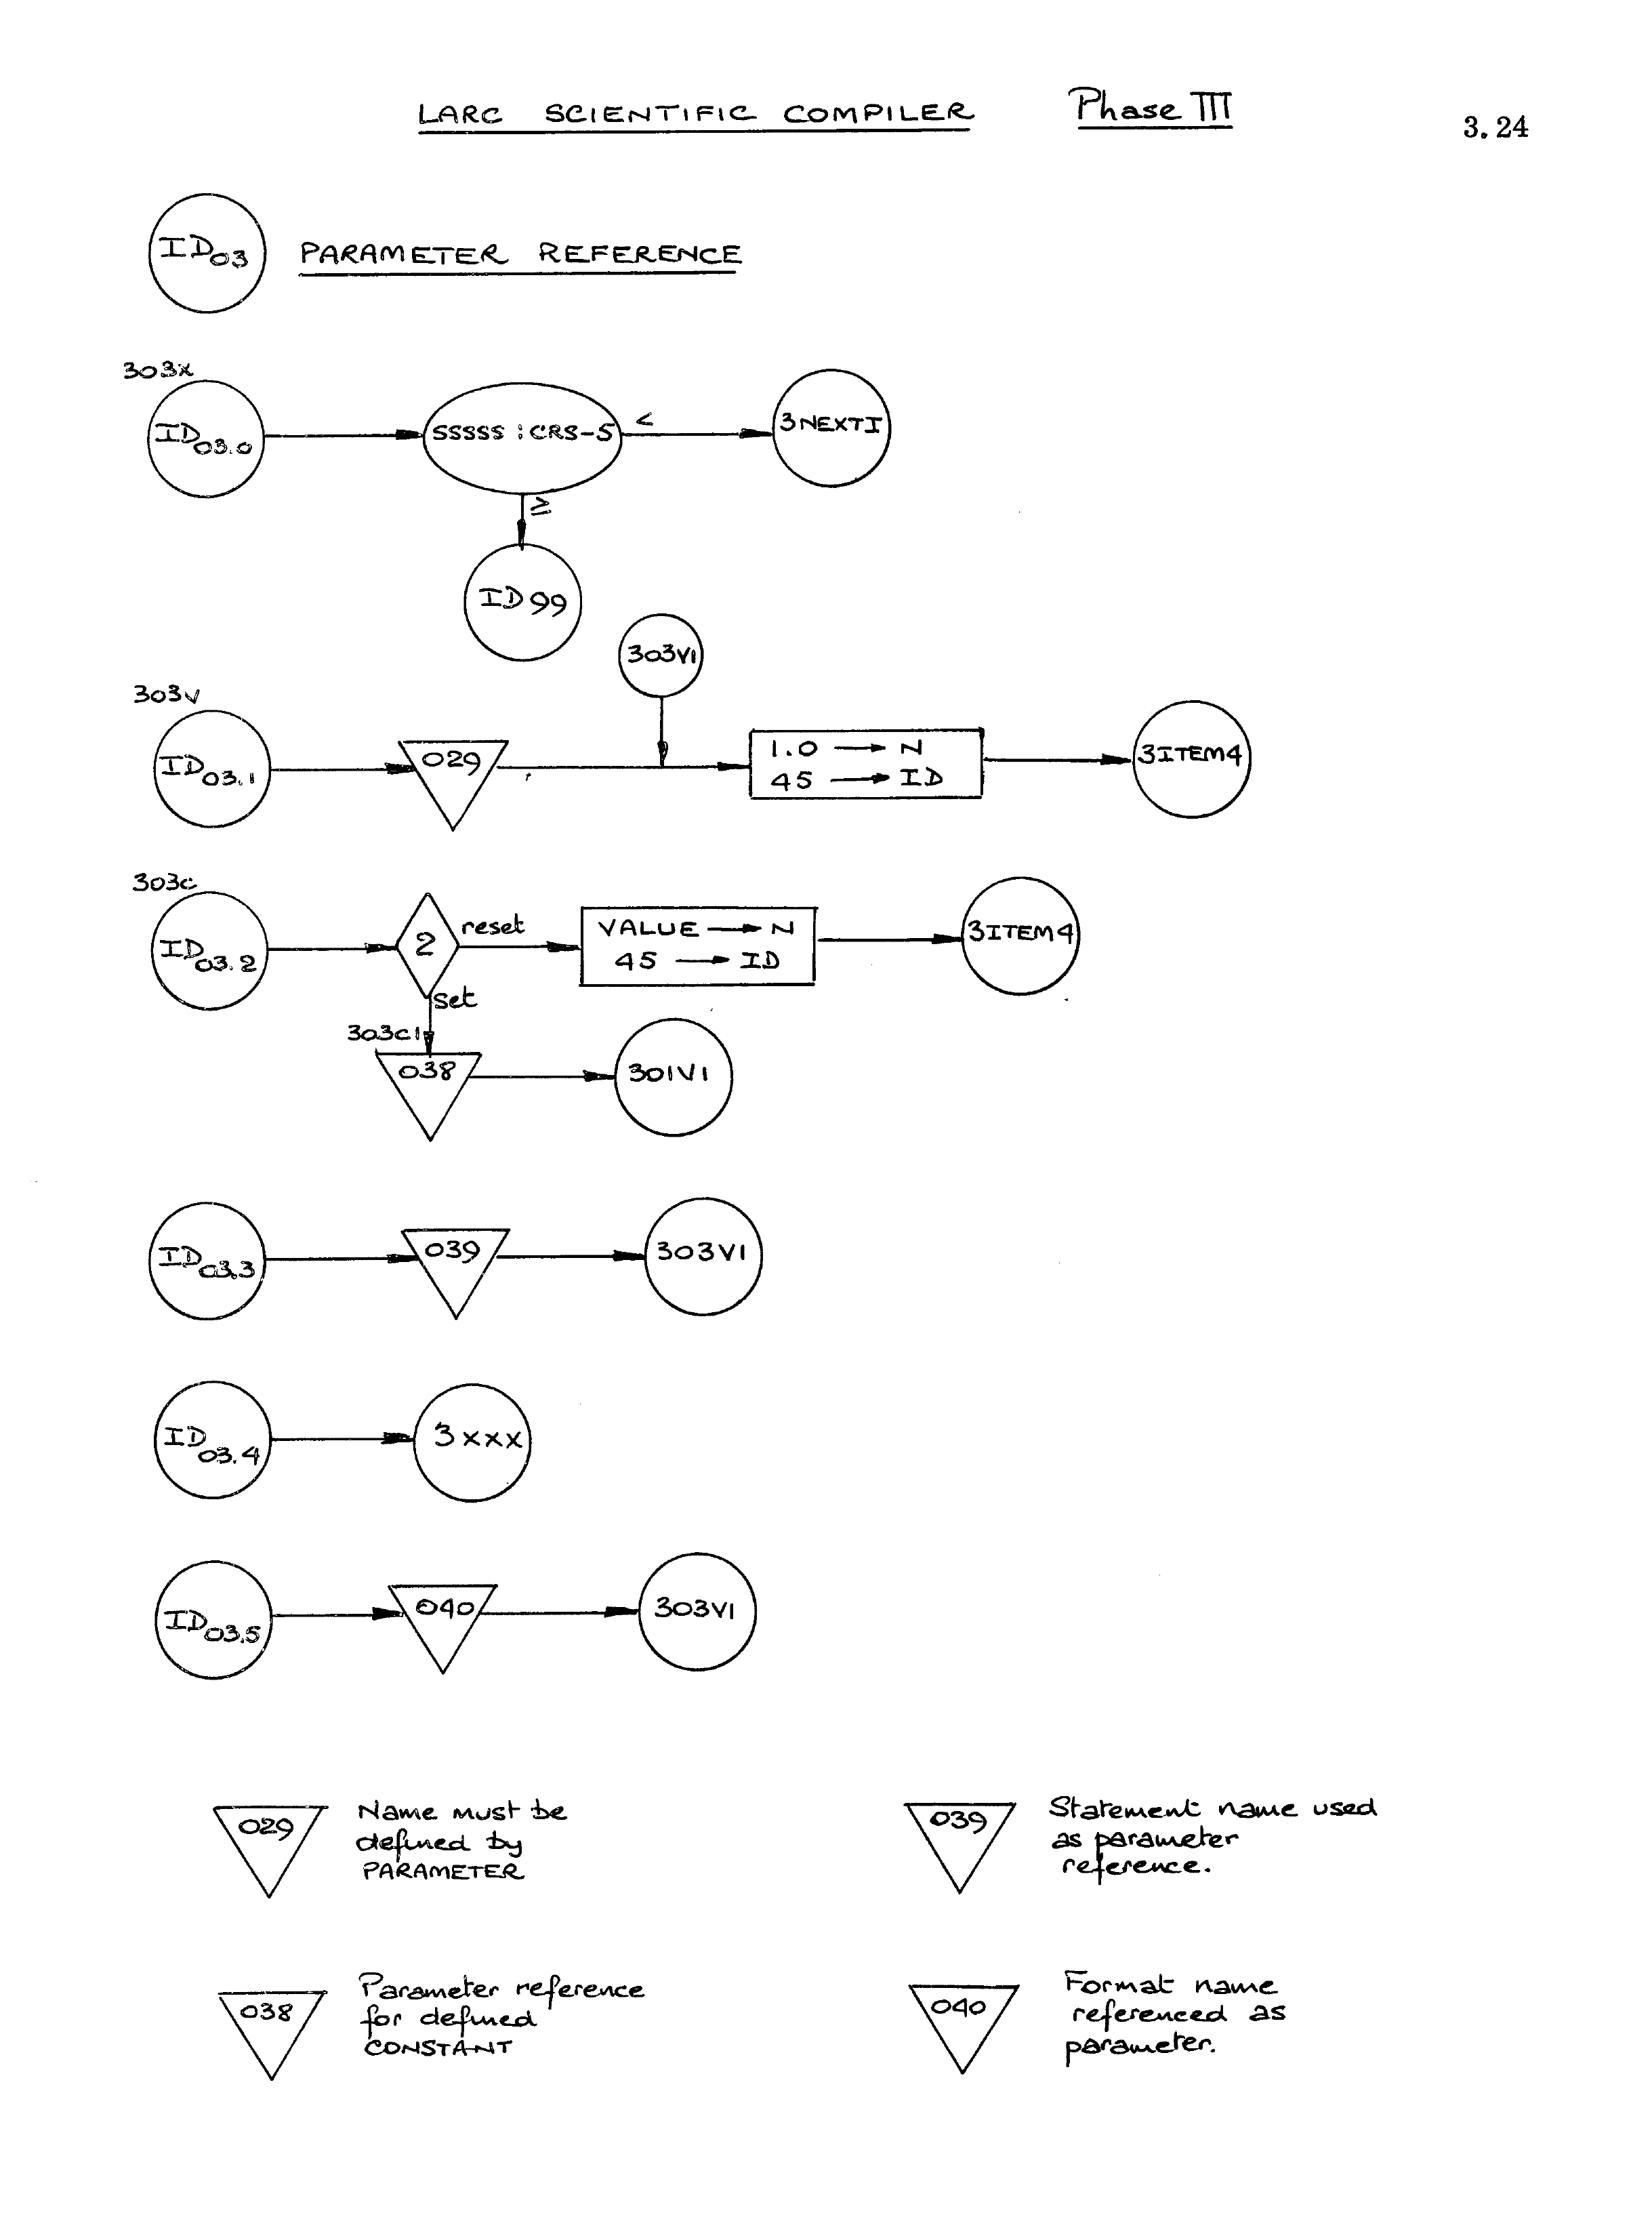 LARC SCIENTIFIC COMPILER Phase III 3.24
ID03 PARAMETER REFERENCE
303x
ID03.0 SSSSS : CRS-5 < 3NEXTI
≥
ID99
303V1
303v
ID03.1 029 1.0 → N 3ITEM4
45 → ID
303c
ID03.2 2 reset VALUE → N 3ITEM4
45 → ID
set
303c1
038 301V1
ID03.3 039 303V1
ID03.4 3xxx
ID03.5 040 303V1
029 Name must be
defined by
PARAMETER
039 Statement name used
as parameter
reference.
038 Parameter reference
for defined
CONSTANT
040 Format name
referenced as
parameter.